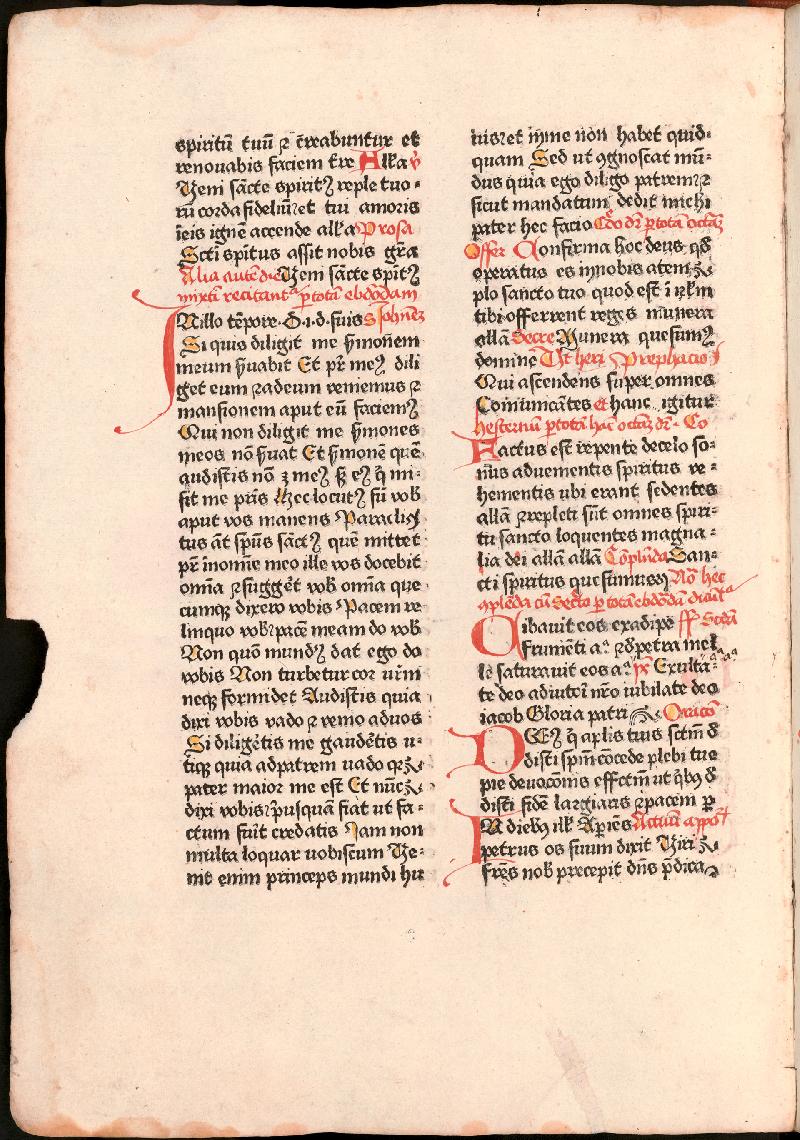 spiritū tuū ⁊ c̄reabuntur et
renouabis faciem t̄re Alľa v̄
Veni sācte spiritꝰ reple tuo-
rū corda fideliū⁊et tui amoris
ī eis ignē accende alľa Prosa
Scti sp̄itus assit nobis grā
Alia autē die Veni sācte sp̄itꝰ
mixti recitant᷑ ꝑ totā ebdōdam
IN illo tēpore · D · i · d · suis S Johnēꝫ
Si quis diligit me h̄monēm
meum h̄uabit Et pr̄ meꝰ dili
get eum ⁊ ad eum veniemus ⁊
mansionem aput eū faciemꝰ
Qui non diligit me h̄mones
meos nō h̄uat Et h̄monē quē
audistis nō ꝫ meꝰ sꝫ eꝰ q̄ mi-
sit me pr̄is Hec locutꝰ sū vob
aput vos manens Paraclȳ
tus āt sp̄us sāctꝰ quē mittet
pr̄ ī nomīe meo ille vos docebit
om̄ia ⁊ suggēt vob om̄ia que
cumqꝫ dixero vobis Pacem re
linquo vob⁊ pacē meam do vob
Non quō mundꝰ dat ego do
vobis Non turbetur cor ur̄m
neqꝫ formidet Audistis quia
dixi vobis vado ⁊ venio ad uos
Si diligētis me gaudētis u-
tiqꝫ quia ad patrem uado qꝛ
pater maior me est Et nūc
dixi vobis ⁊ pusquā fiat ut fa-
ctum fuīt credatis Jam non
multa loquar uobiscum Ve-
nit enim princeps mundi hu
ius ⁊et in me nōn habet quid-
quam Sed ut ꝯgnoscat mū-
dus quia ego diligo patrem ⁊
sicut mandatum dedit michi
pater hec facio Cdo dr̄ ꝑ totā octāꝫ
Offer Confirma hoc deus qđ
operatus es in nobis a tem
plo sancto tuo quod est ī irľm
tibi offerrent reges munera
allā Secre Munera quesumꝰ
domine Ut heri Prephacio
Qui ascendens super omnes
Comunicātes et hanc igitur
hesternū ꝑ totā hāc octāꝫ dr̄ · Co
Factus est repente de celo so-
nus aduenientis spiritus ve-
hementis ubi erant sedentes
allā ⁊ repleti sūt omnes spiri-
tu sancto loquentes magna-
lia dei allā allā Cōplnda San-
cti spiritus quesumus Nō hec
ꝯplēda cū Secto ꝑ totā ebdōdā dicit᷑
Cibauit eos ex adipe ff Scdā
frumēti aᵃ ⁊ d̄ petra mel
le saturauit eos aᵃ p̄s Exulta-
te deo adiutori nr̄o iubilate deo
iacob Gloria patri Oracō
DEꝰ q̄ aplīs tuis sctm̄ d
disti spm̄ cōcede plebi tue
pie deuocōnis effctm̄ ut qbꝰ d
disti fidē largiaris ⁊ pacem ꝑ
In diebꝰ illꝭ Apiēs Actuū appōľ
petrus os suum dixit Viri
frēs nob precepit dn̄s p̄dica